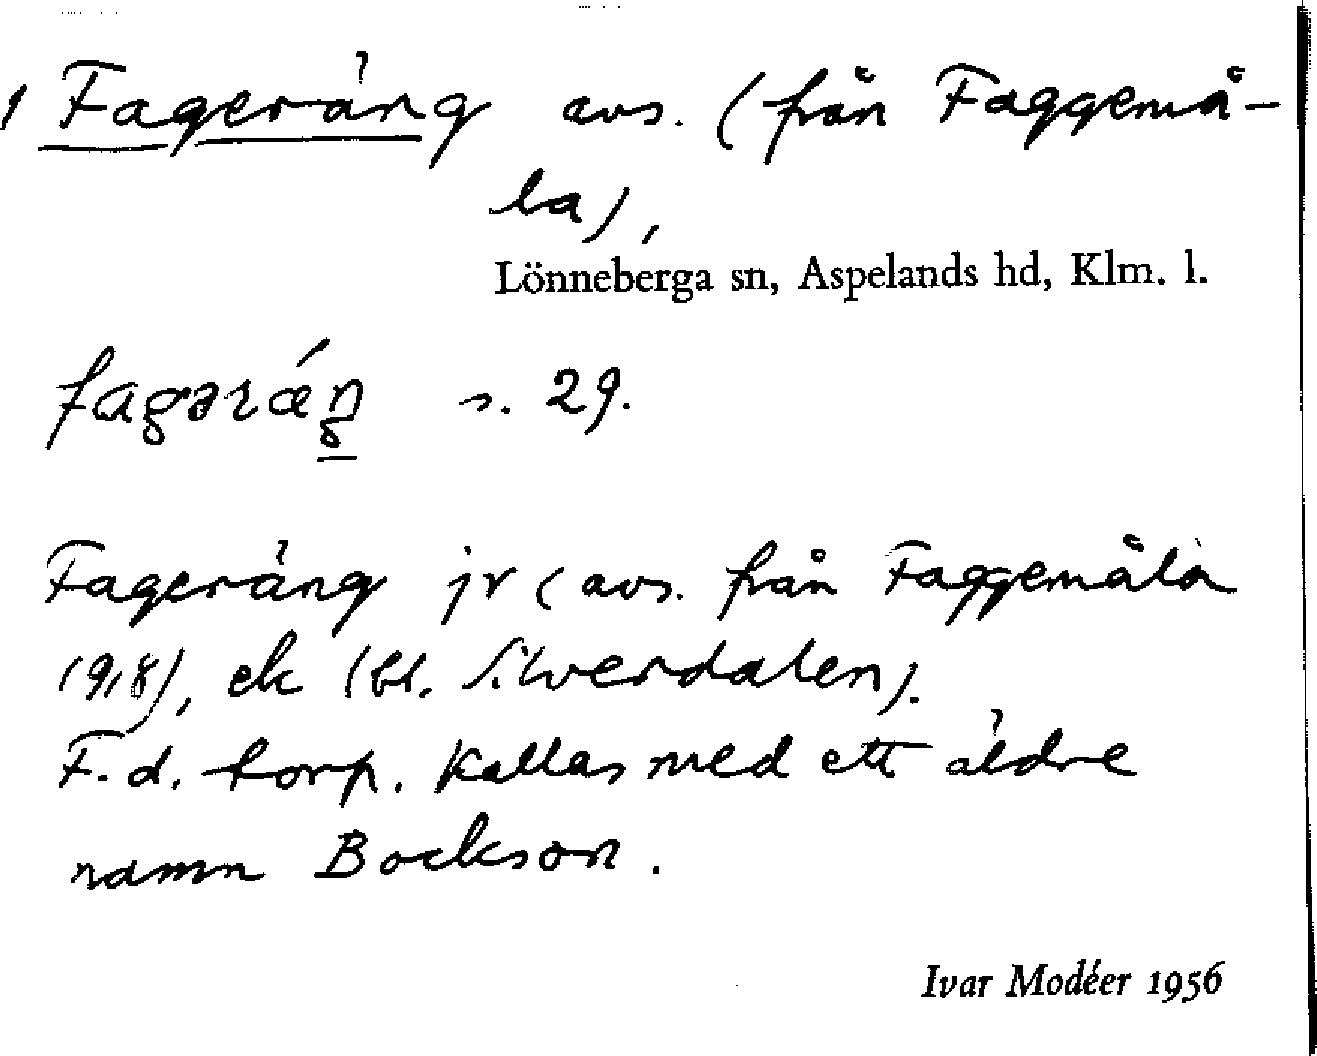 1 Fageräng avs. (från Faggemå-
la),
Lönneberga sn, Aspelands hd, Klm. l.
fagəræ´ŋ s. 29.
Fageräng jr (avs. från Faggemåla
1918), ek (bl. Silverdalen).
F.d. torp. Kallas med ett äldre
namn Bockson.
Ivar Modéer 1956